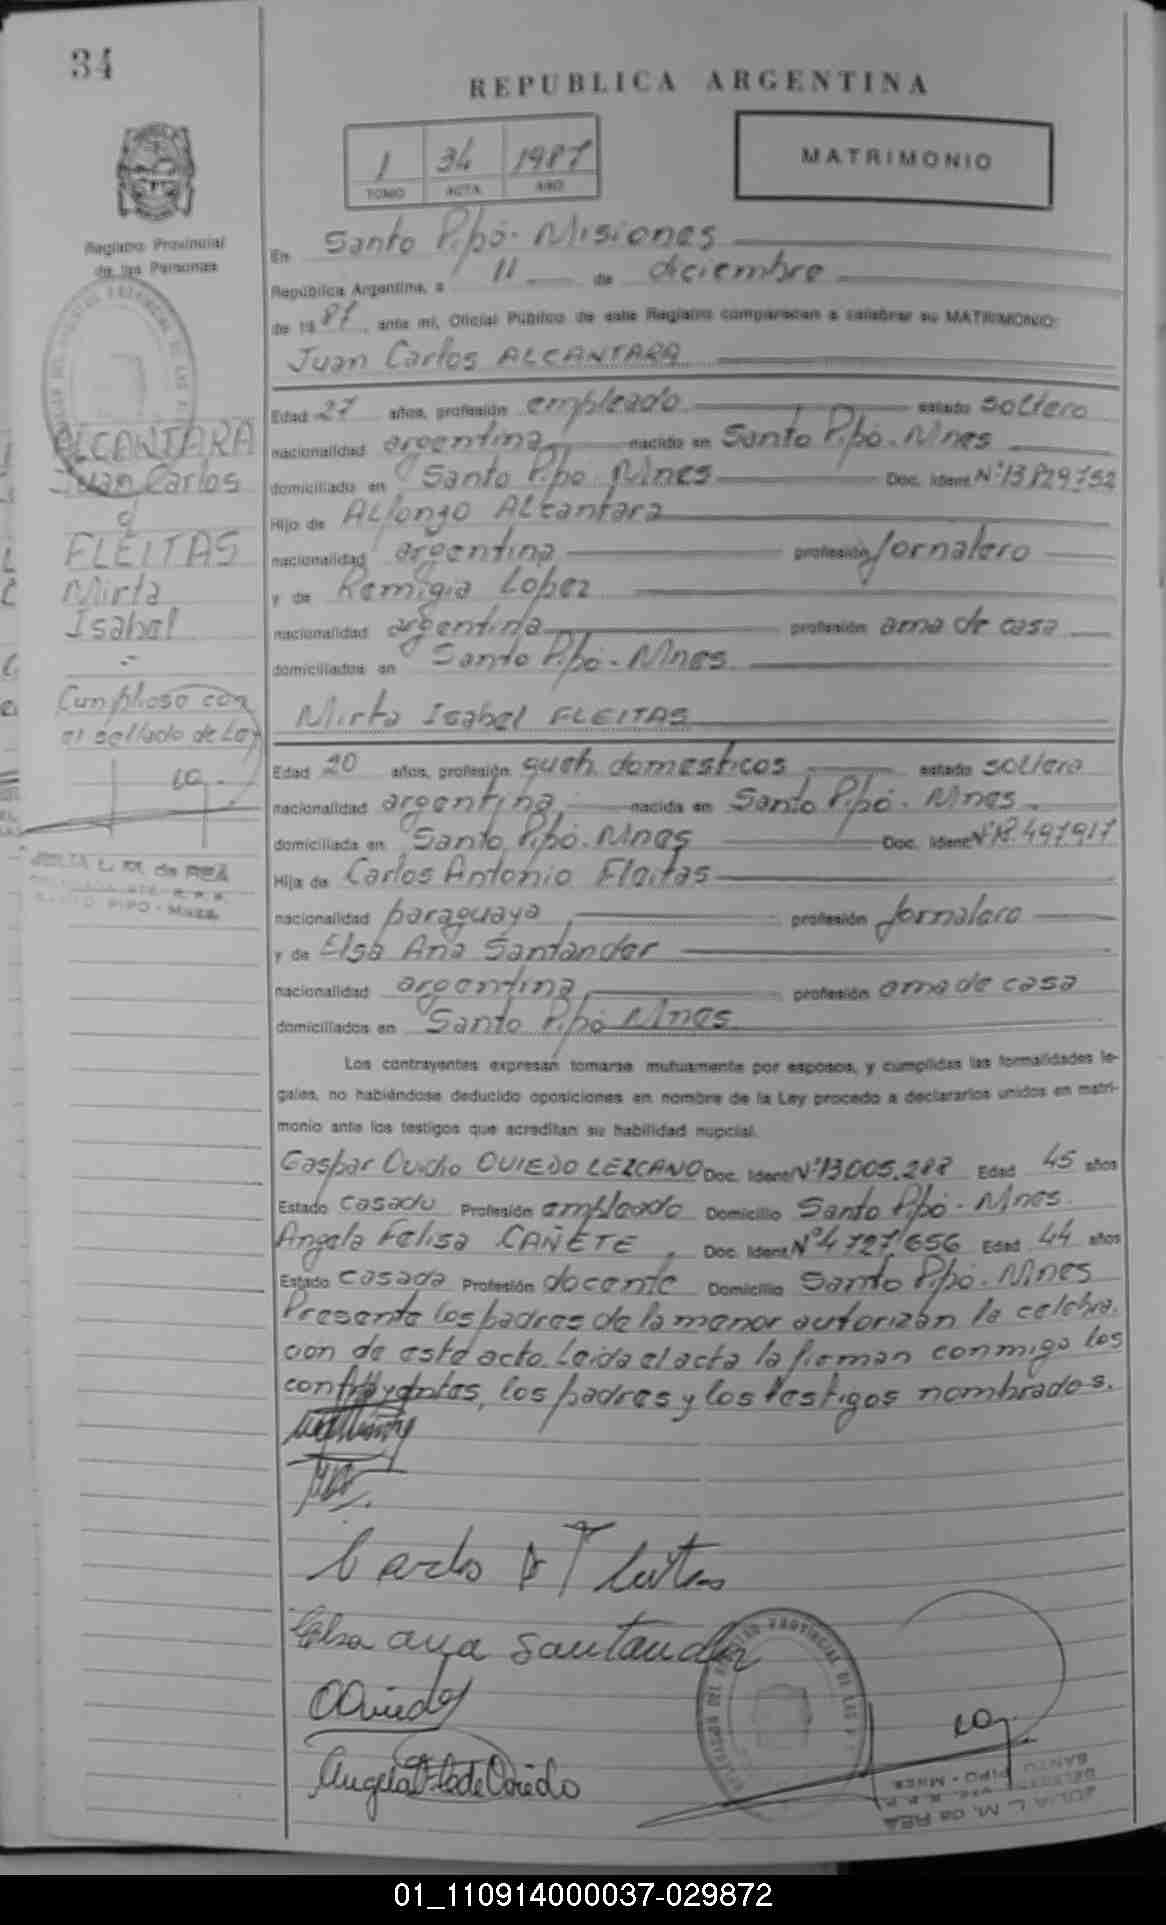 34
REPUBLICA ARGENTINA
1 34 1987
TOMO ACTA AÑO
MATRIMONIO
Registro Provincial
de las Personas
En Santo Pipó - Misiones
República Argentina, a 11 de diciembre
de 19 87, ante mi, Oficial Público de este Registro comparecen a celebrar su MATRIMONIO:
Juan Carlos ALCANTARA
Edad 27 años, profesión empleado estado soltero
nacionalidad argentina nacido en Santo Pipó. Mnes
domiciliado en Santo Pipó Mnes Doc. Ident. Nº 13.829.752
Hijo de Alfonzo Alcantara
nacionalidad argentina profesión jornalero
y de Remigia Lopez
nacionalidad argentina profesión ama de casa
domiciliados en Santo Pipó - Mnes
Mirta Isabel FLEITAS
Edad 20 años, profesión queh. domesticos estado soltera
nacionalidad argentina nacida en Santo Pipó. Mnes.
domiciliada en Santo Pipó. Mnes Doc. Ident. Nº 18.497.917
Hija de Carlos Antonio Fleitas
nacionalidad paraguaya profesión jornalero
y de Elsa Ana Santander
nacionalidad argentina profesión ama de casa
domiciliados en Santo Pipó Mnes
ALCANTARA
Juan Carlos
FLEITAS
Mirta
Isabel
Cumplióse con
el sellado de Ley
JULIA L. M. de REA
SANTO PIPO - Mnes.
Los contrayentes expresan tomarse mutuamente por esposos, y cumplidas las formalidades le-
gales, no habiéndose deducido oposiciones en nombre de la Ley procedo a declararlos unidos en matri-
monio ante los testigos que acreditan su habilidad nupcial.
Gaspar Ovidio OVIEDO LEZCANO Doc. Ident. Nº 13.005.288 Edad 45 años
Estado casado Profesión empleado Domicilio Santo Pipó - Mnes.
Angela Felisa CAÑETE, Doc. Ident. Nº 4.727.656 Edad 44 años
Estado casada Profesión docente Domicilio Santo Pipó. Mnes
Presente los padres de la menor autorizan la celebra-
ción de este acto. Leída el acta la firman conmigo los
contrayentes, los padres y los testigos nombrados.
Carlos A Fleitas
Elsa ana Santander
Oviedo
Angela F. C. de Oviedo
JULIA L. M. de REA
SANTO PIPO - Mnes.
01_110914000037-029872